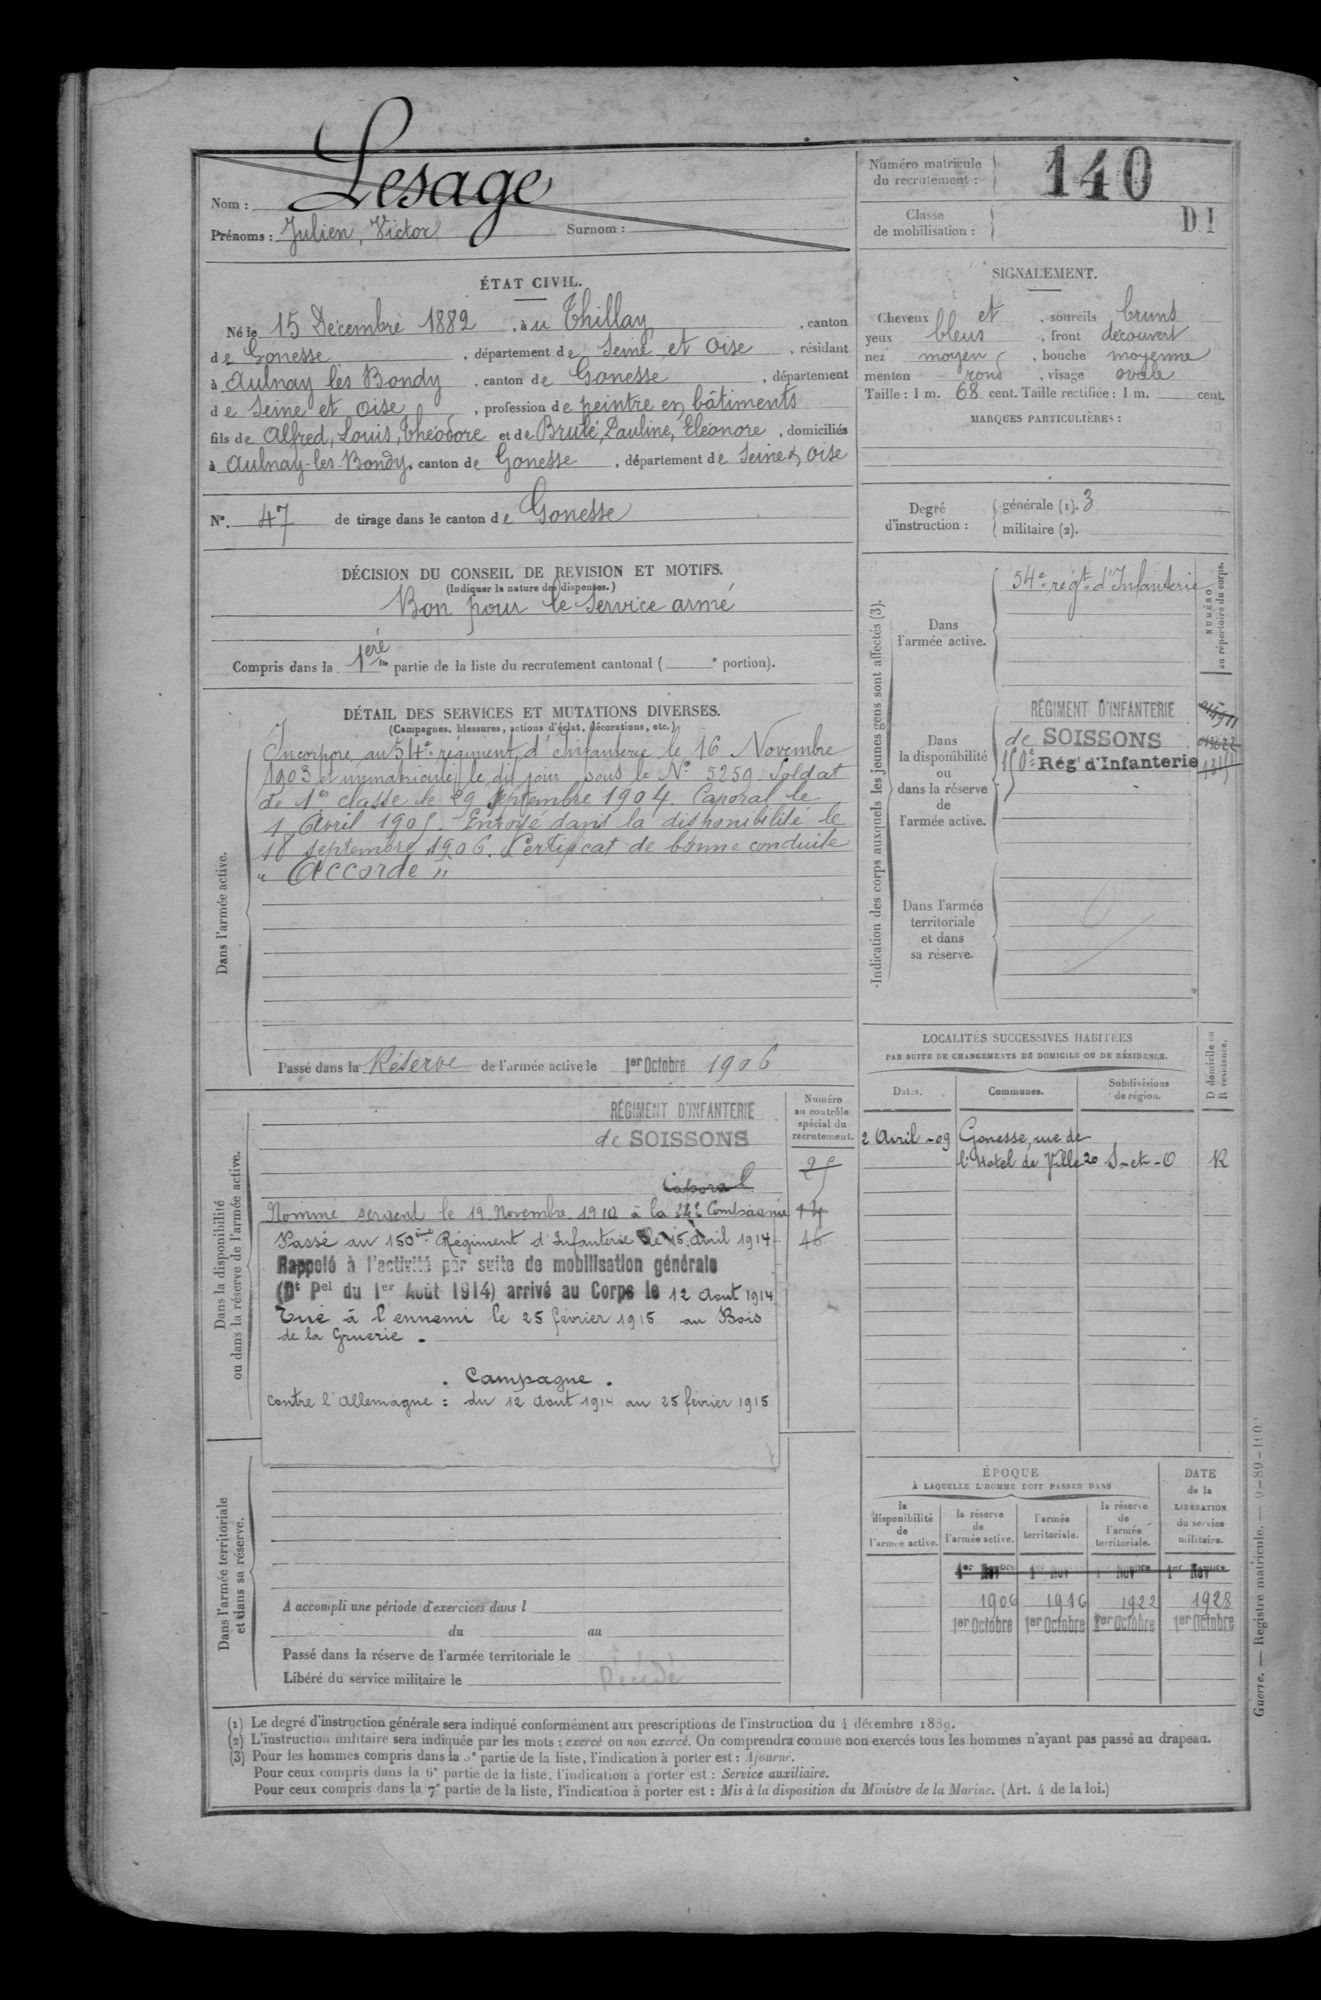 Nom : Lesage
Prénoms : Julien, Victor Surnom :
Numéro matricule du recrutement : 140
Classe de mobilisation :
D I
ÉTAT CIVIL.
Né le 15 Décembre 1882, à u Thillay, canton
de Gonesse, département de Seine et Oise, résidant
à Aulnay les Bondy, canton de Gonesse, département
de Seine et Oise, profession de peintre en bâtiments
fils de Alfred, Louis, Théodore et de Brulé, Pauline, Eléonore, domiciliés
à Aulnay-les-Bondy, canton de Gonesse, département de Seine & Oise
N° 47 de tirage dans le canton de Gonesse
SIGNALEMENT.
Cheveux et, sourcils bruns
yeux bleus, front découvert
nez moyen, bouche moyenne
menton rond, visage ovale
Taille : 1 m. 68 cent. Taille rectifiée : 1 m. cent.
MARQUES PARTICULIÈRES :
Degré d'instruction : générale (1). 3
militaire (2).
DÉCISION DU CONSEIL DE REVISION ET MOTIFS.
(Indiquer la nature des dispenses.)
Bon pour le Service armé
Compris dans la 1ère partie de la liste du recrutement cantonal ( e portion).
DÉTAIL DES SERVICES ET MUTATIONS DIVERSES.
(Campagnes, blessures, actions d'éclat, décorations, etc.)
Dans l'armée active.
Incorporé au 54e régiment d'Infanterie le 16 Novembre
1903 et immatriculé le dit jour sous le N° 5259. Soldat
de 1re classe le 29 septembre 1904. Caporal le
1 Avril 1905. Envoyé dans la disponibilité le
18 septembre 1906. Certificat de bonne conduite
" Accordé "
Passé dans la Réserve de l'armée active le 1er Octobre 1906
Indication des corps auxquels les jeunes gens sont affectés (3).
NUMÉRO au répertoire du corps.
Dans l'armée active.
54e régt d'Infanterie
Dans la disponibilité ou dans la réserve de l'armée active.
RÉGIMENT D'INFANTERIE
de SOISSONS
150e Rég' d'Infanterie
Dans l'armée territoriale et dans sa réserve.
LOCALITÉS SUCCESSIVES HABITÉES
PAR SUITE DE CHANGEMENTS DE DOMICILE OU DE RÉSIDENCE.
D domicile ou R résidence.
Dates. Communes. Subdivisions de région.
2 Avril -09 Gonesse, rue de
l'Hotel de Ville 20 S-et-O R
Dans la disponibilité ou dans la réserve de l'armée active.
Numéro au contrôle spécial du recrutement.
RÉGIMENT D'INFANTERIE
de SOISSONS
25
Caporal
Nommé sergent le 19 Novembre 1910 à la 24e Compagnie
Passé au 150ème Régiment d'Infanterie le 15 avril 1914
46
Rappelé à l'activité par suite de mobilisation générale
(Dt Pel du 1er Août 1914) arrivé au Corps le 12 Aout 1914
Tué à l'ennemi le 25 février 1915 au Bois
de la Gruerie.
Campagne.
Contre l'Allemagne : du 12 Aout 1914 au 25 février 1915
Dans l'armée territoriale et dans sa réserve.
A accompli une période d'exercices dans l
du au
Passé dans la réserve de l'armée territoriale le
Libéré du service militaire le
Décédé
ÉPOQUE
À LAQUELLE L'HOMME DOIT PASSER DANS
DATE de la LIBÉRATION du service militaire.
la disponibilité de l'armée active.
la réserve de l'armée active.
l'armée territoriale.
la réserve de l'armée territoriale.
1er Novbre 1er Nov 1er Novbre 1er Novbre
1906 1916 1922 1928
1er Octobre 1er Octobre 1er Octobre 1er Octobre
(1) Le degré d'instruction générale sera indiqué conformément aux prescriptions de l'instruction du 4 décembre 1889.
(2) L'instruction militaire sera indiquée par les mots : exercé ou non exercé. On comprendra comme non exercés tous les hommes n'ayant pas passé au drapeau.
(3) Pour les hommes compris dans la 5e partie de la liste, l'indication à porter est : Ajourné.
Pour ceux compris dans la 6e partie de la liste, l'indication à porter est : Service auxiliaire.
Pour ceux compris dans la 7e partie de la liste, l'indication à porter est : Mis à la disposition du Ministre de la Marine. (Art. 4 de la loi.)
Guerre. — Registre matricule.